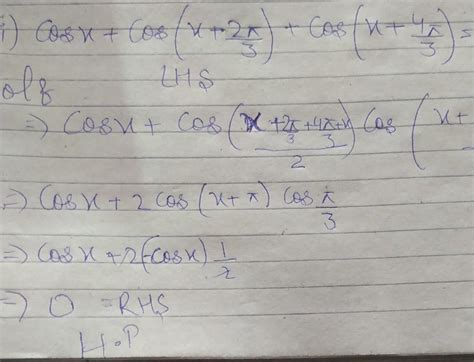 i) Cosx + Cos(x + 2π/3) + Cos(x + 4π/3) =
LHS
ol⁸
⇒ Cosx + Cos((x + 2π/3 + 4π/3 + x)/2) Cos(x +
⇒ Cosx + 2 Cos(x + π) Cos π/3
⇒ Cosx + 2(-Cosx) 1/2
⇒ 0 = RHS
H.P